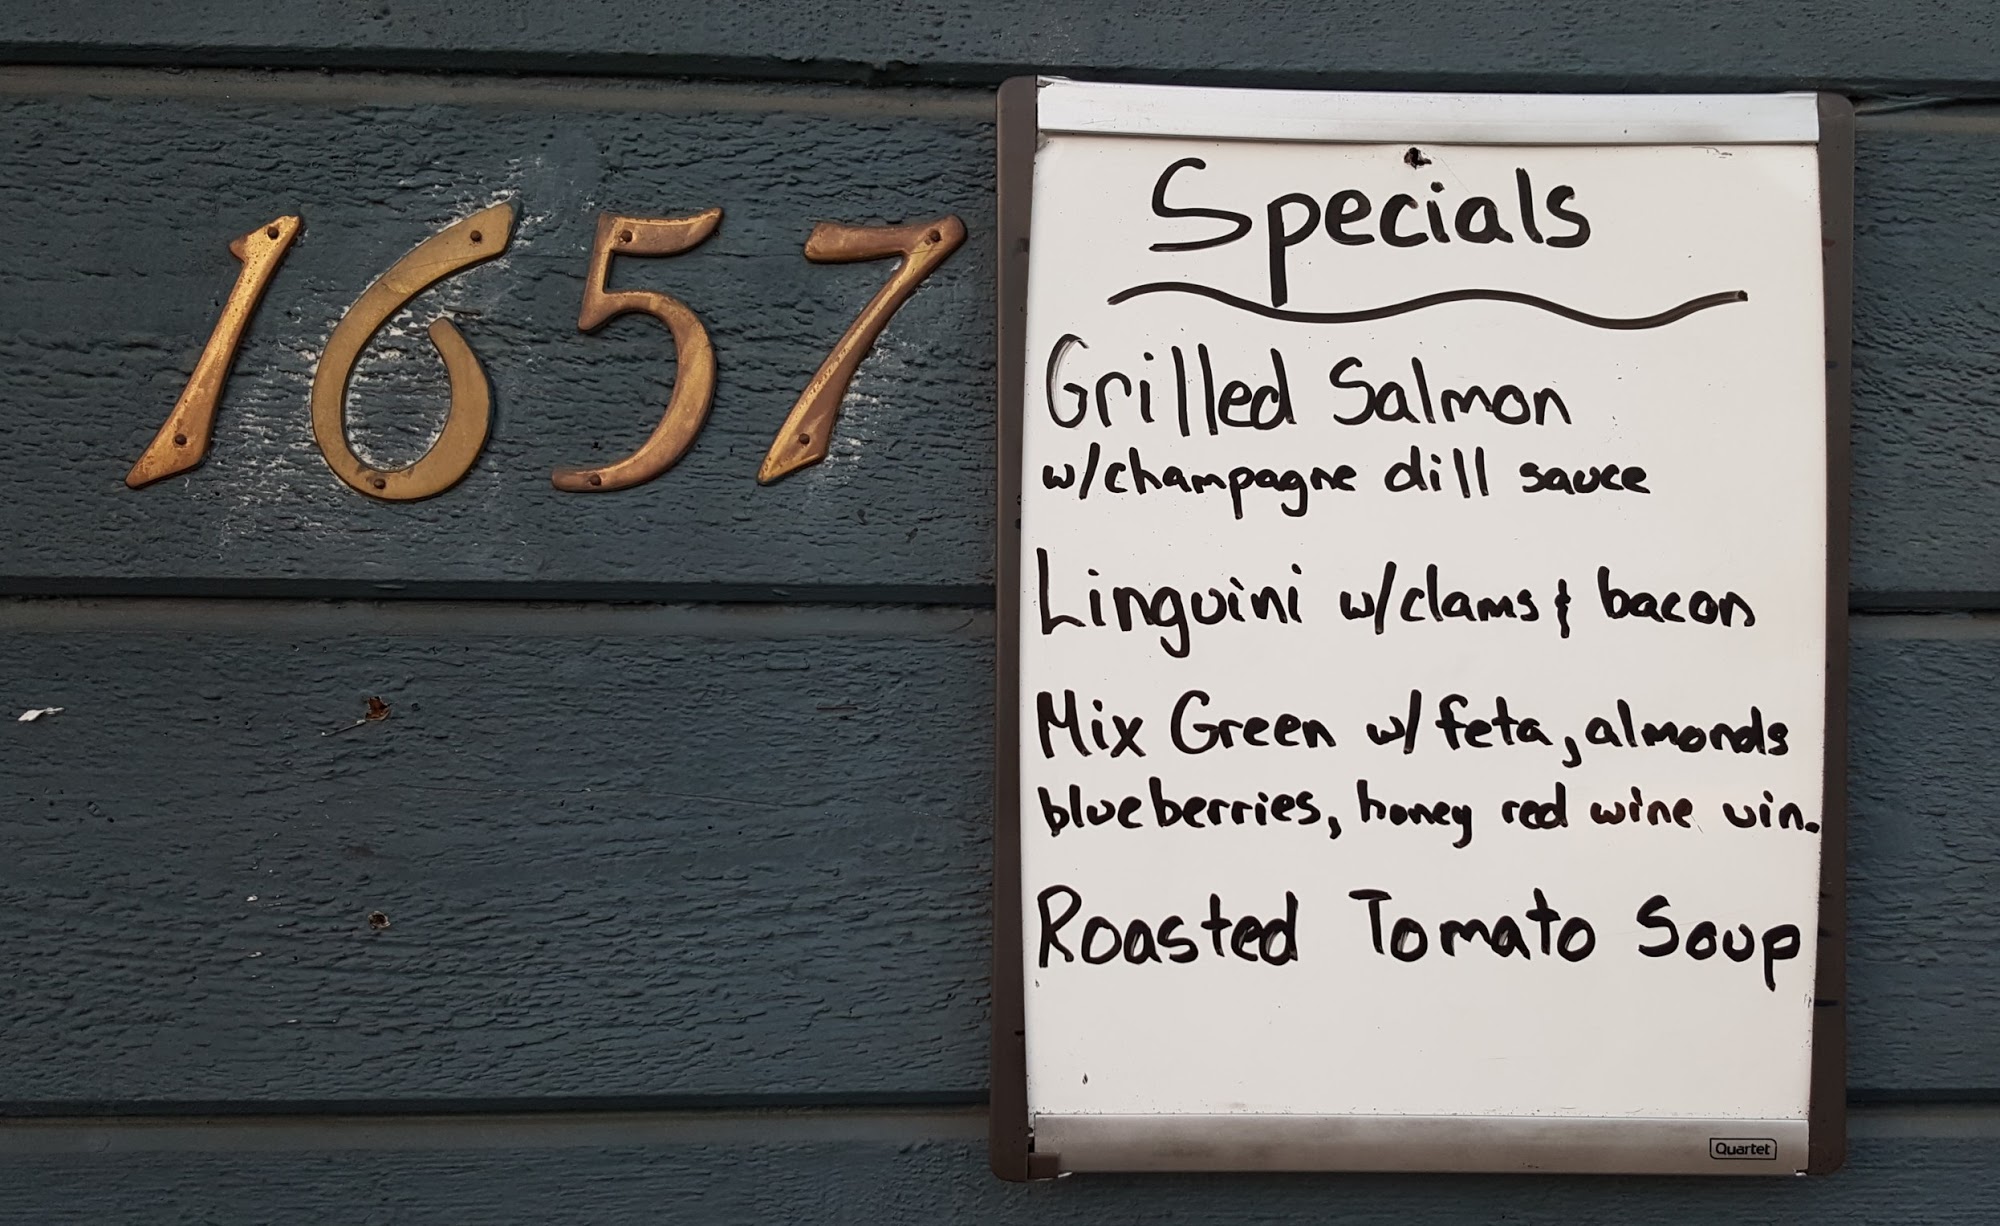 1657
Specials
Grilled Salmon
w/champagne dill sauce
Linguini w/clams & bacon
Mix Green w/ feta, almonds
blueberries, honey red wine vin.
Roasted Tomato Soup
Quartet